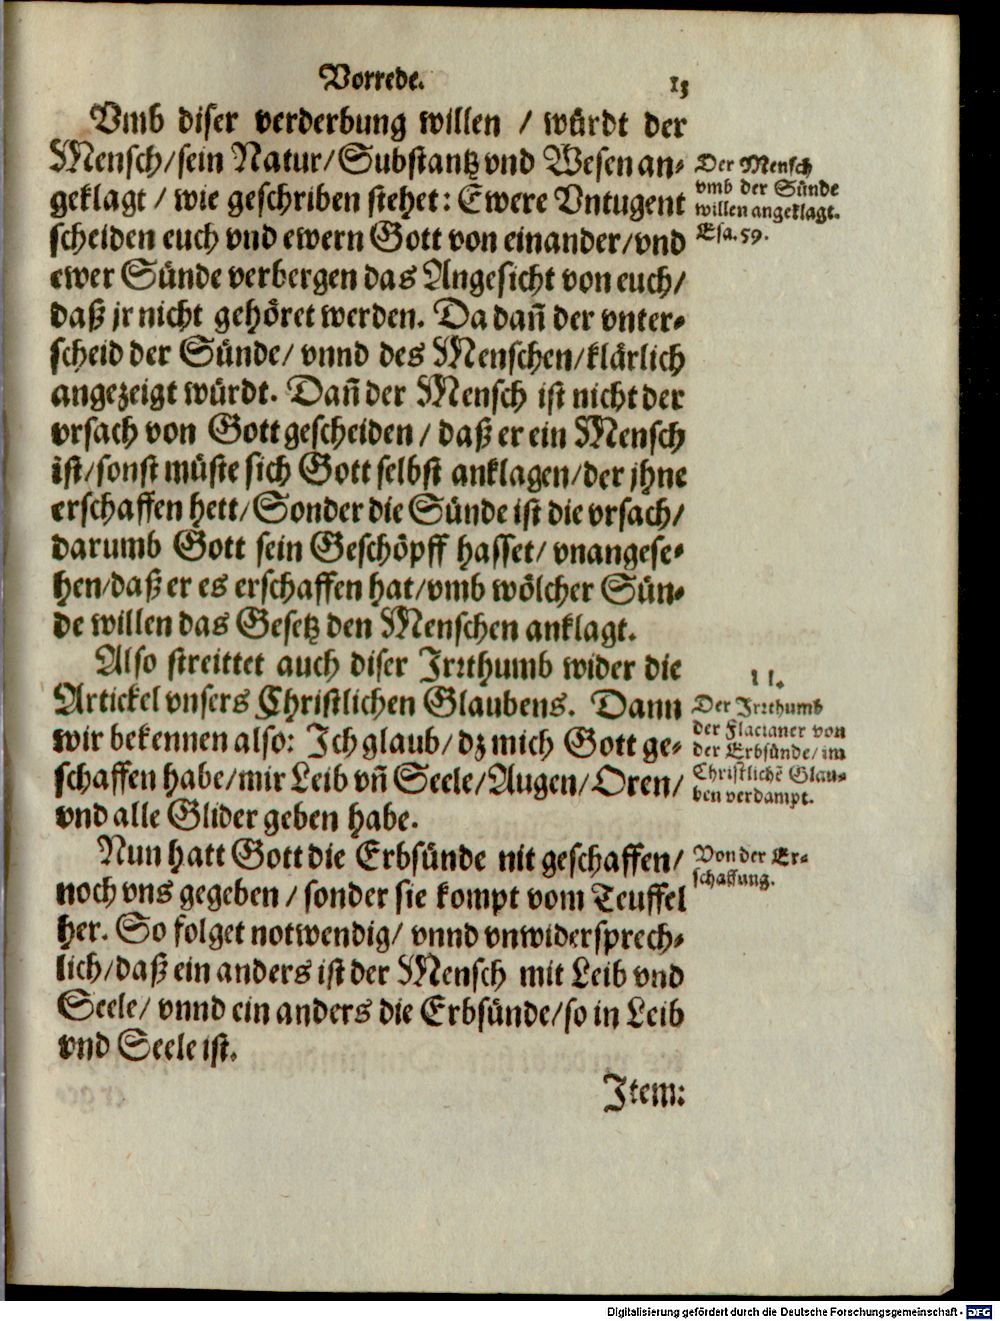 Vorrede. 13
Vmb diser verderbung willen / würdt der
Mensch/sein Natur/Substantz vnd Wesen an-
geklagt / wie geschriben stehet: Ewere Vntugent
scheiden euch vnd ewern Gott von einander/vnd
ewer Sünde verbergen das Angesicht von euch/
daß jr nicht gehöret werden. Da dañ der vnter-
scheid der Sünde/ vnnd des Menschen/klärlich
angezeigt würdt. Dañ der Mensch ist nicht der
vrsach von Gott gescheiden / daß er ein Mensch
ist/sonst müste sich Gott selbst anklagen/der jhne
erschaffen hett/Sonder die Sünde ist die vrsach/
darumb Gott sein Geschöpff hasset/ vnangese-
hen/daß er es erschaffen hat/vmb wölcher Sün-
de willen das Gesetz den Menschen anklagt.
Der Mensch
vmb der Sünde
willen angeklagt.
Esa.59.
Also streittet auch diser Jrrthumb wider die
Artickel vnsers Christlichen Glaubens. Dann
wir bekennen also: Ich glaub/ dz mich Gott ge-
schaffen habe/mir Leib vñ Seele/Augen/Oren/
vnd alle Glider geben habe.
11.
Der Jrrthumb
der Flacianer von
der Erbsünde/im
Christlichē Glau-
ben verdampt.
Nun hatt Gott die Erbsünde nit geschaffen/
noch vns gegeben / sonder sie kompt vom Teuffel
her. So folget notwendig/ vnnd vnwidersprech-
lich/daß ein anders ist der Mensch mit Leib vnd
Seele/ vnnd ein anders die Erbsünde/so in Leib
vnd Seele ist.
Von der Er-
schaffung.
Item:
Digitalisierung gefördert durch die Deutsche Forschungsgemeinschaft - DFG